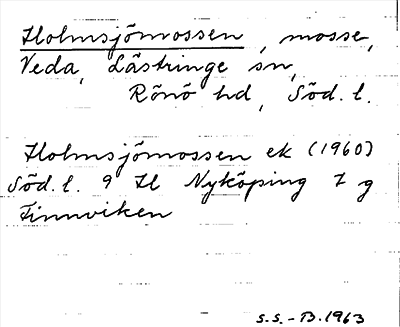 Holmsjömossen, mosse,
Veda, Lästringe sn,
Rönö hd, Söd. l.
Holmsjömossen ek (1960)
Söd. l. 9 H Nyköping 7 g
Finnviken
S.S. - B. 1963